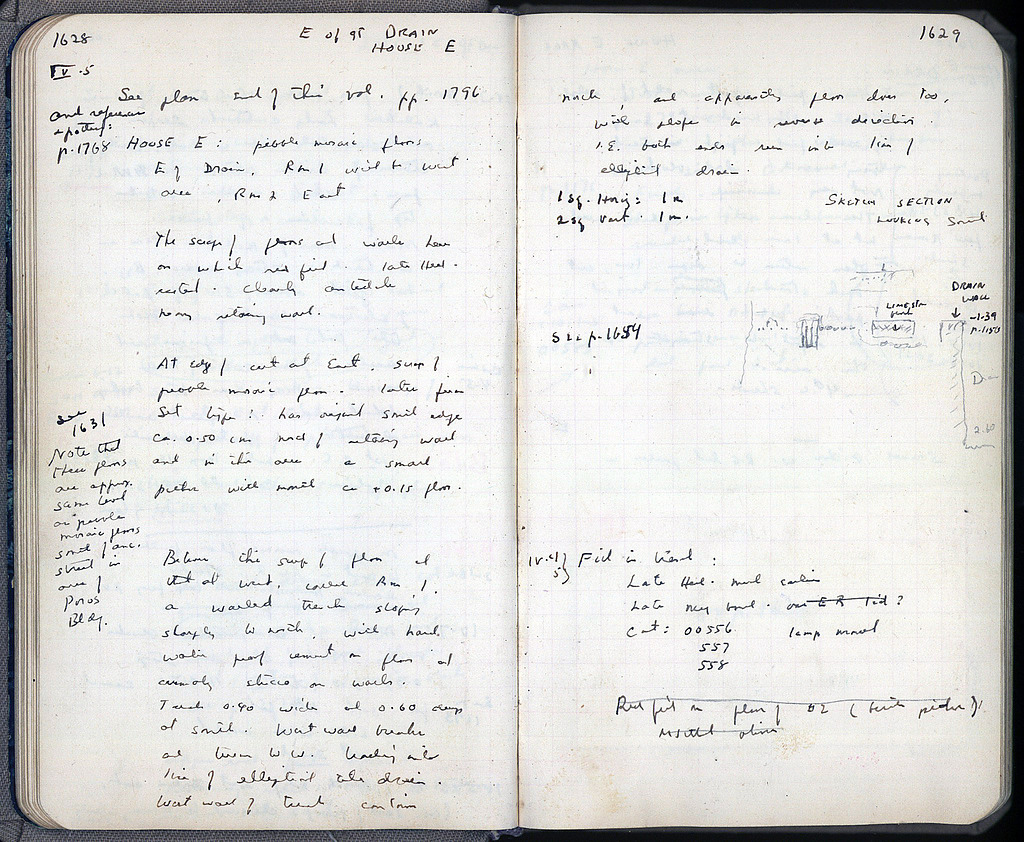 1628
E of gt DRAIN
HOUSE E
IV.5
See plan end of this vol. pp. 1796
and reference
pottery:
p. 1768
HOUSE E: pebble mosaic floors
E of Drain, Rm 1 will be west
area, Rm 2 East
The scrap of floors and walls here
on which red fill. late Hell.
rested. Clearly antedate
heavy retaining wall.
At edge of cut at East, scrap of
pebble mosaic floor. later from
set type: has original south edge
ca. 0.50 cm north of retaining wall
and in this area a small
pithos with mouth ca +0.15 floor.
see
1631
Note that
these floors
are approx.
same level
as pebble
mosaic floors
south of anc.
street in
area of
Poros
Bldg.
Between this scrap of floor and
that at west, called Rm 1,
a walled trench sloping
sharply to north, with hard
water proof cement on floor and
stucco on walls.
Trench 0.40 wide and 0.60 deep
at south. West wall breaks
and turns to W. leading into
line of elliptical tile drain.
West wall of trench contains
1629
north, and apparently floor does too,
with slope in reverse direction.
I.E. both ends run into line of
elliptical drain.
1 sq. Horiz: 1 m
2 sq vert. 1 m.
SKETCH SECTION
LOOKING South
DRAIN
WALL
-1.39
See p. 1684
Drain
2.60
IV.4}
5}
Fill in trench:
Late Hell. and earlier
Late neg bowl. over ER lid?
Cat: 00556 lamp mould
557
558
Red fill on floor of 02 (with pithos)